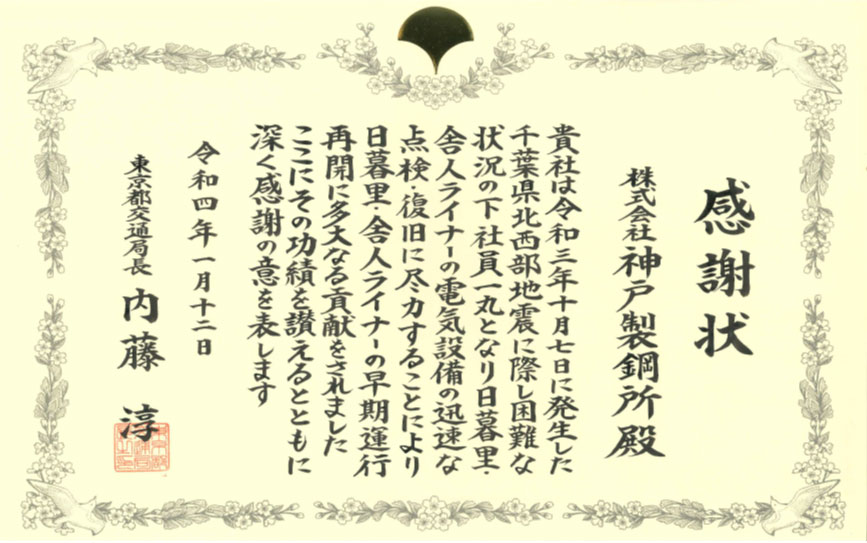 感謝状
株式会社神戸製鋼所殿
貴社は令和三年十月七日に発生した
千葉県北西部地震に際し困難な
状況の下社員一丸となり日暮里・
舎人ライナーの電気設備の迅速な
点検・復旧に尽力することにより
日暮里・舎人ライナーの早期運行
再開に多大なる貢献をされました
ここにその功績を讃えるとともに
深く感謝の意を表します
令和四年一月十二日
東京都交通局長 内藤 淳